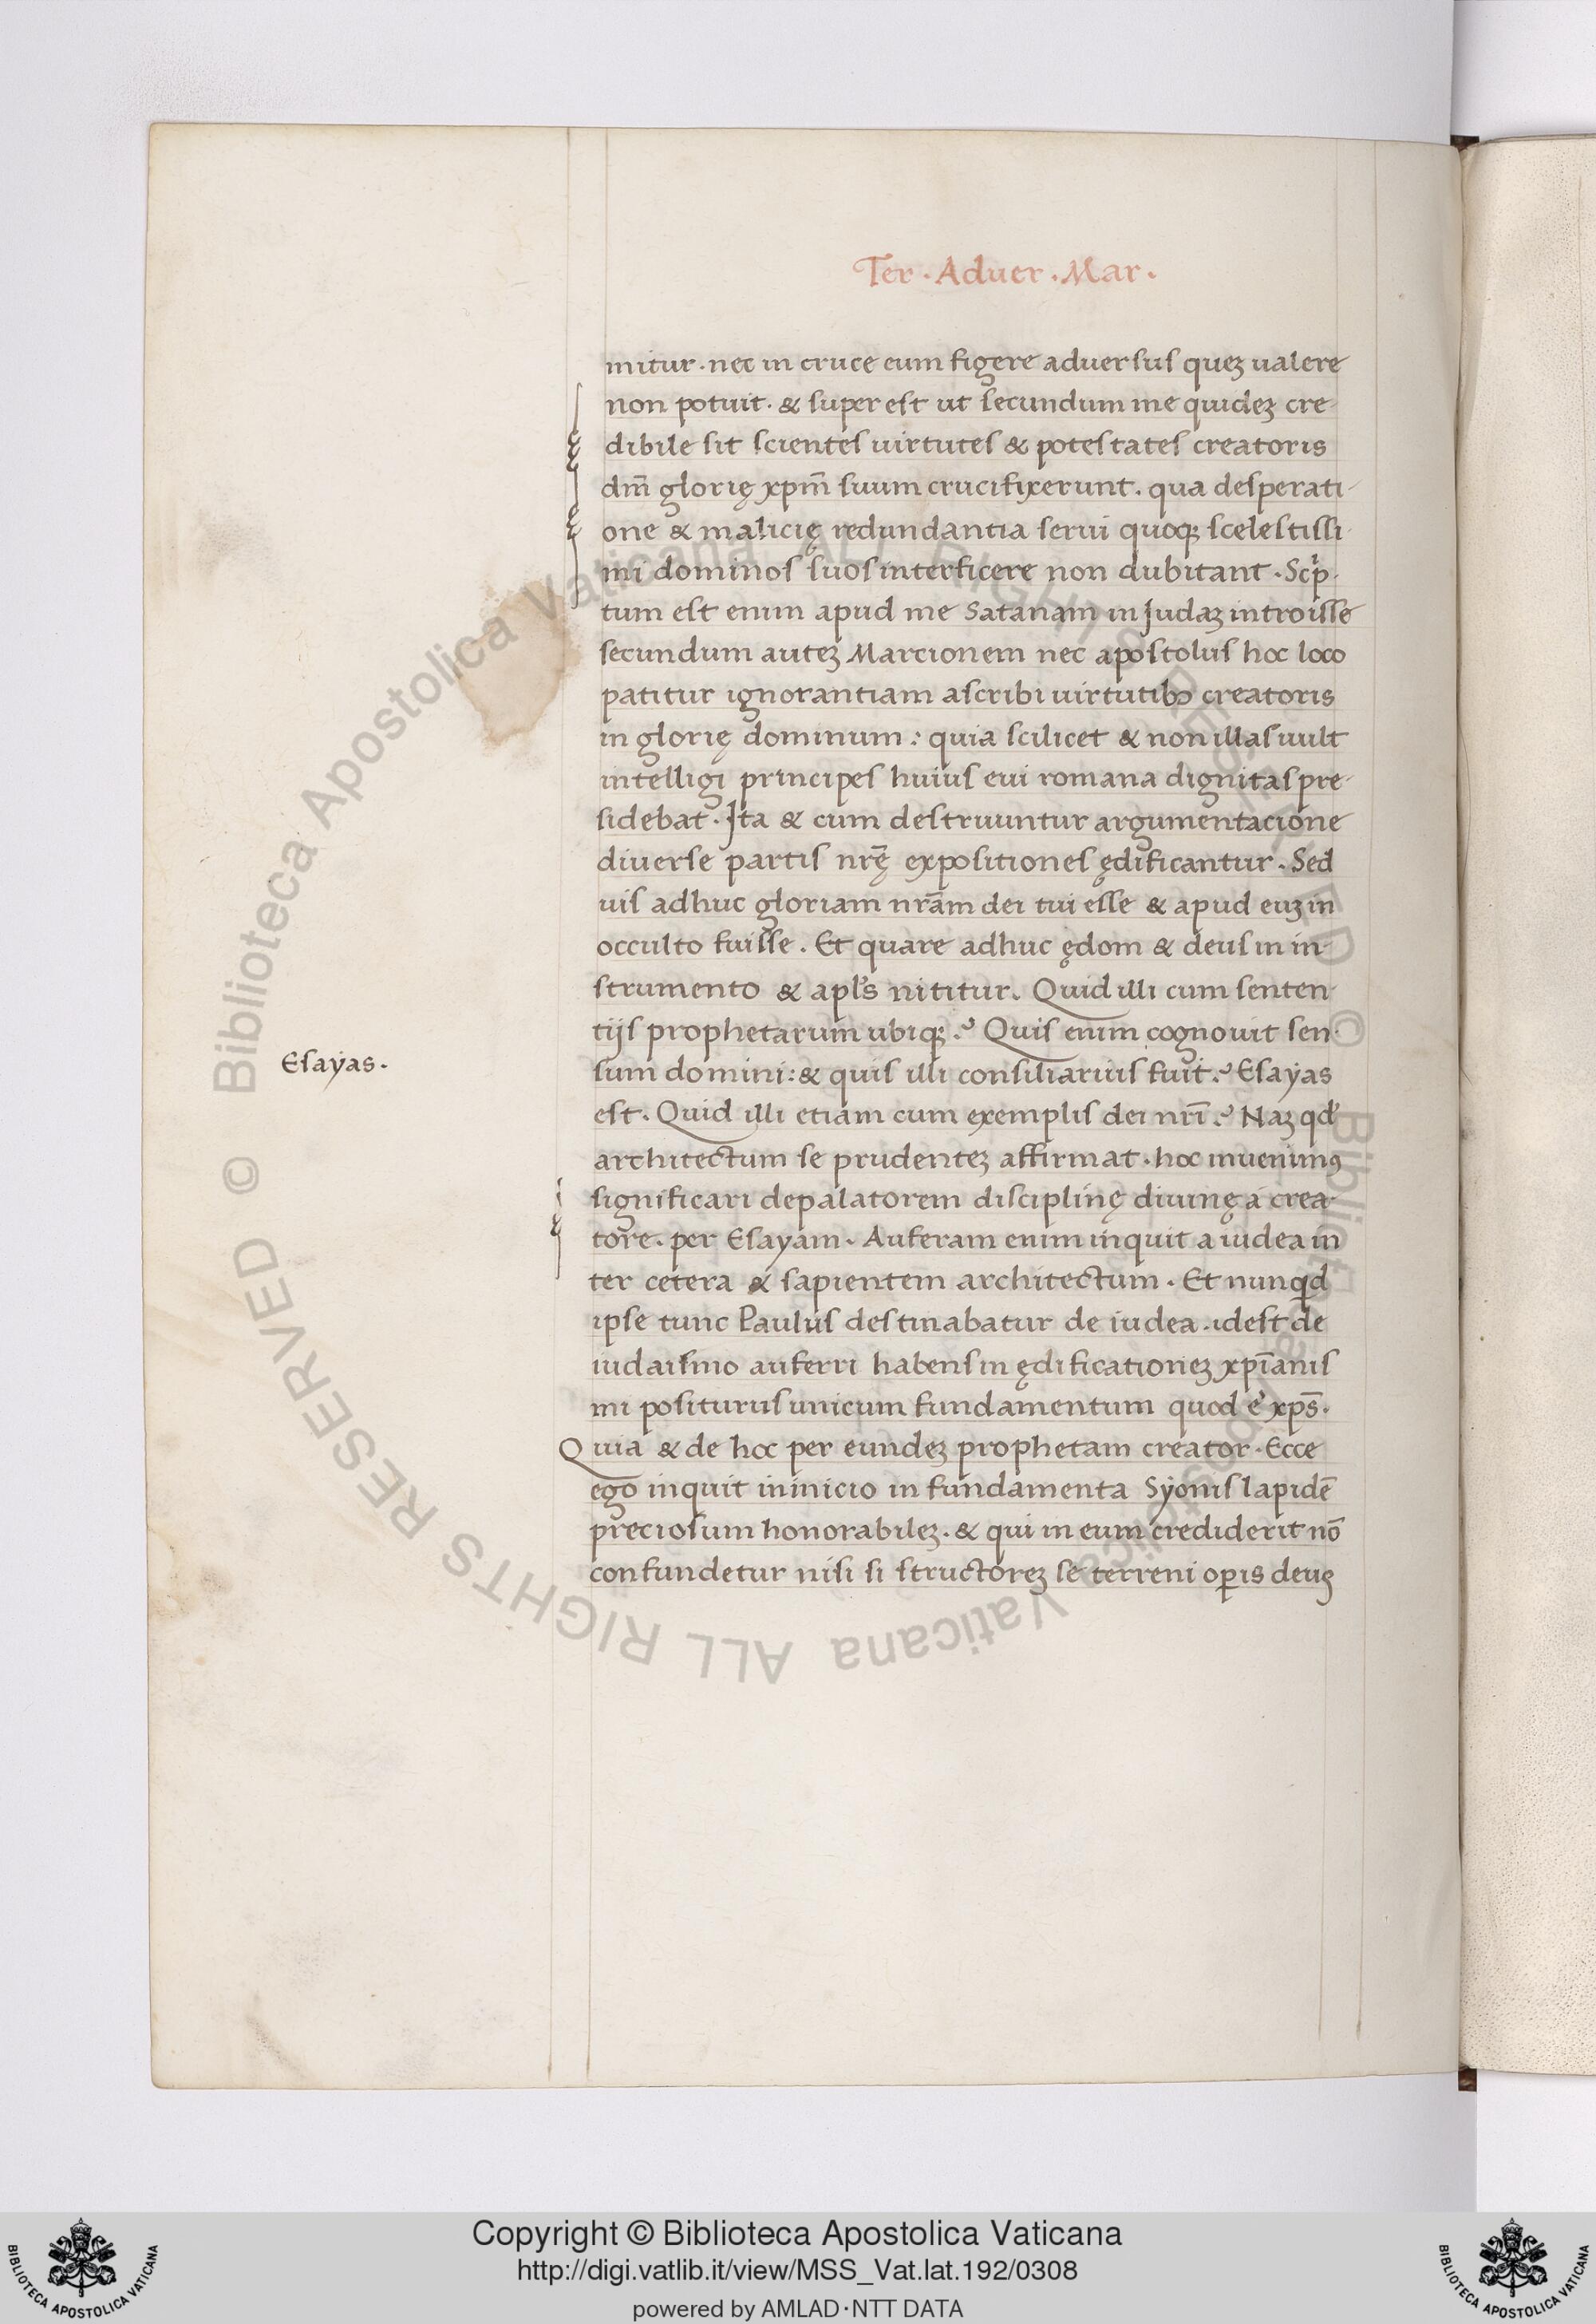 Ter . Aduer . Mar .
mitur . nec in cruce eum figere aduersus queꝫ ualere
non potuit . & super est ut secundum me quideꝫ cre
dibile sit scientes uirtutes & potestates creatoris
dm̄ glorię xpm̄ suum crucifixerunt . qua desperati
one & malicię redundantia serui quoqꝫ scelestissi
mi dominos suos interficere non dubitant . Scͥp
tum est enim apud me Satanam in Judaꝫ introisse
secundum auteꝫ Marcionem nec apostolus hoc loco
patitur ignorantiam ascribi uirtutibꝫ creatoris
in glorię dominum : quia scilicet & non illas uult
intelligi principes huius eui romana dignitas pre
sidebat . Ita & cum destruuntur argumentacione
diuerse partis nr̄ę expositiones ędificantur . Sed
uis adhuc gloriam nr̄am dei tui esse & apud euꝫ in
occulto fuisse . Et quare adhuc ędom & deus in in
strumento & apl's nititur . Quid illi cum senten
tijs prophetarum ubiqꝫ ? Quis enim cognouit sen
sum domini : & quis illi consiliarius fuit ? Esayas
Esayas .
est . Quid illi etiam cum exemplis dei nr̄i ? Naꝫ qd'
architectum se prudenteꝫ affirmat . hoc inuenimꝰ
significari depalatorem disciplinę diuinę a crea
tore . per Esayam . Auferam enim inquit a iudea in
ter cetera & sapientem architectum . Et nunqd
ipse tunc Paulus destinabatur de iudea . idest de
iudaismo auferri habens in ędificationeꝫ xp̄ianis
mi positurus unicum fundamentum quod ē xp̄s .
Quia & de hoc per eundeꝫ prophetam creator . Ecce
ego inquit in inicio in fundamenta Syonis lapidē
preciosum honorabileꝫ . & qui in eum crediderit nō
confundetur nisi si structoreꝫ se terreni oꝑis deuꝫ
© Biblioteca Apostolica Vaticana ALL RIGHTS RESERVED © Biblioteca Apostolica Vaticana ALL RIGHTS RESERVED
Copyright © Biblioteca Apostolica Vaticana
http://digi.vatlib.it/view/MSS_Vat.lat.192/0308
powered by AMLAD·NTT DATA
BIBLIOTECA APOSTOLICA VATICANA
BIBLIOTECA APOSTOLICA VATICANA